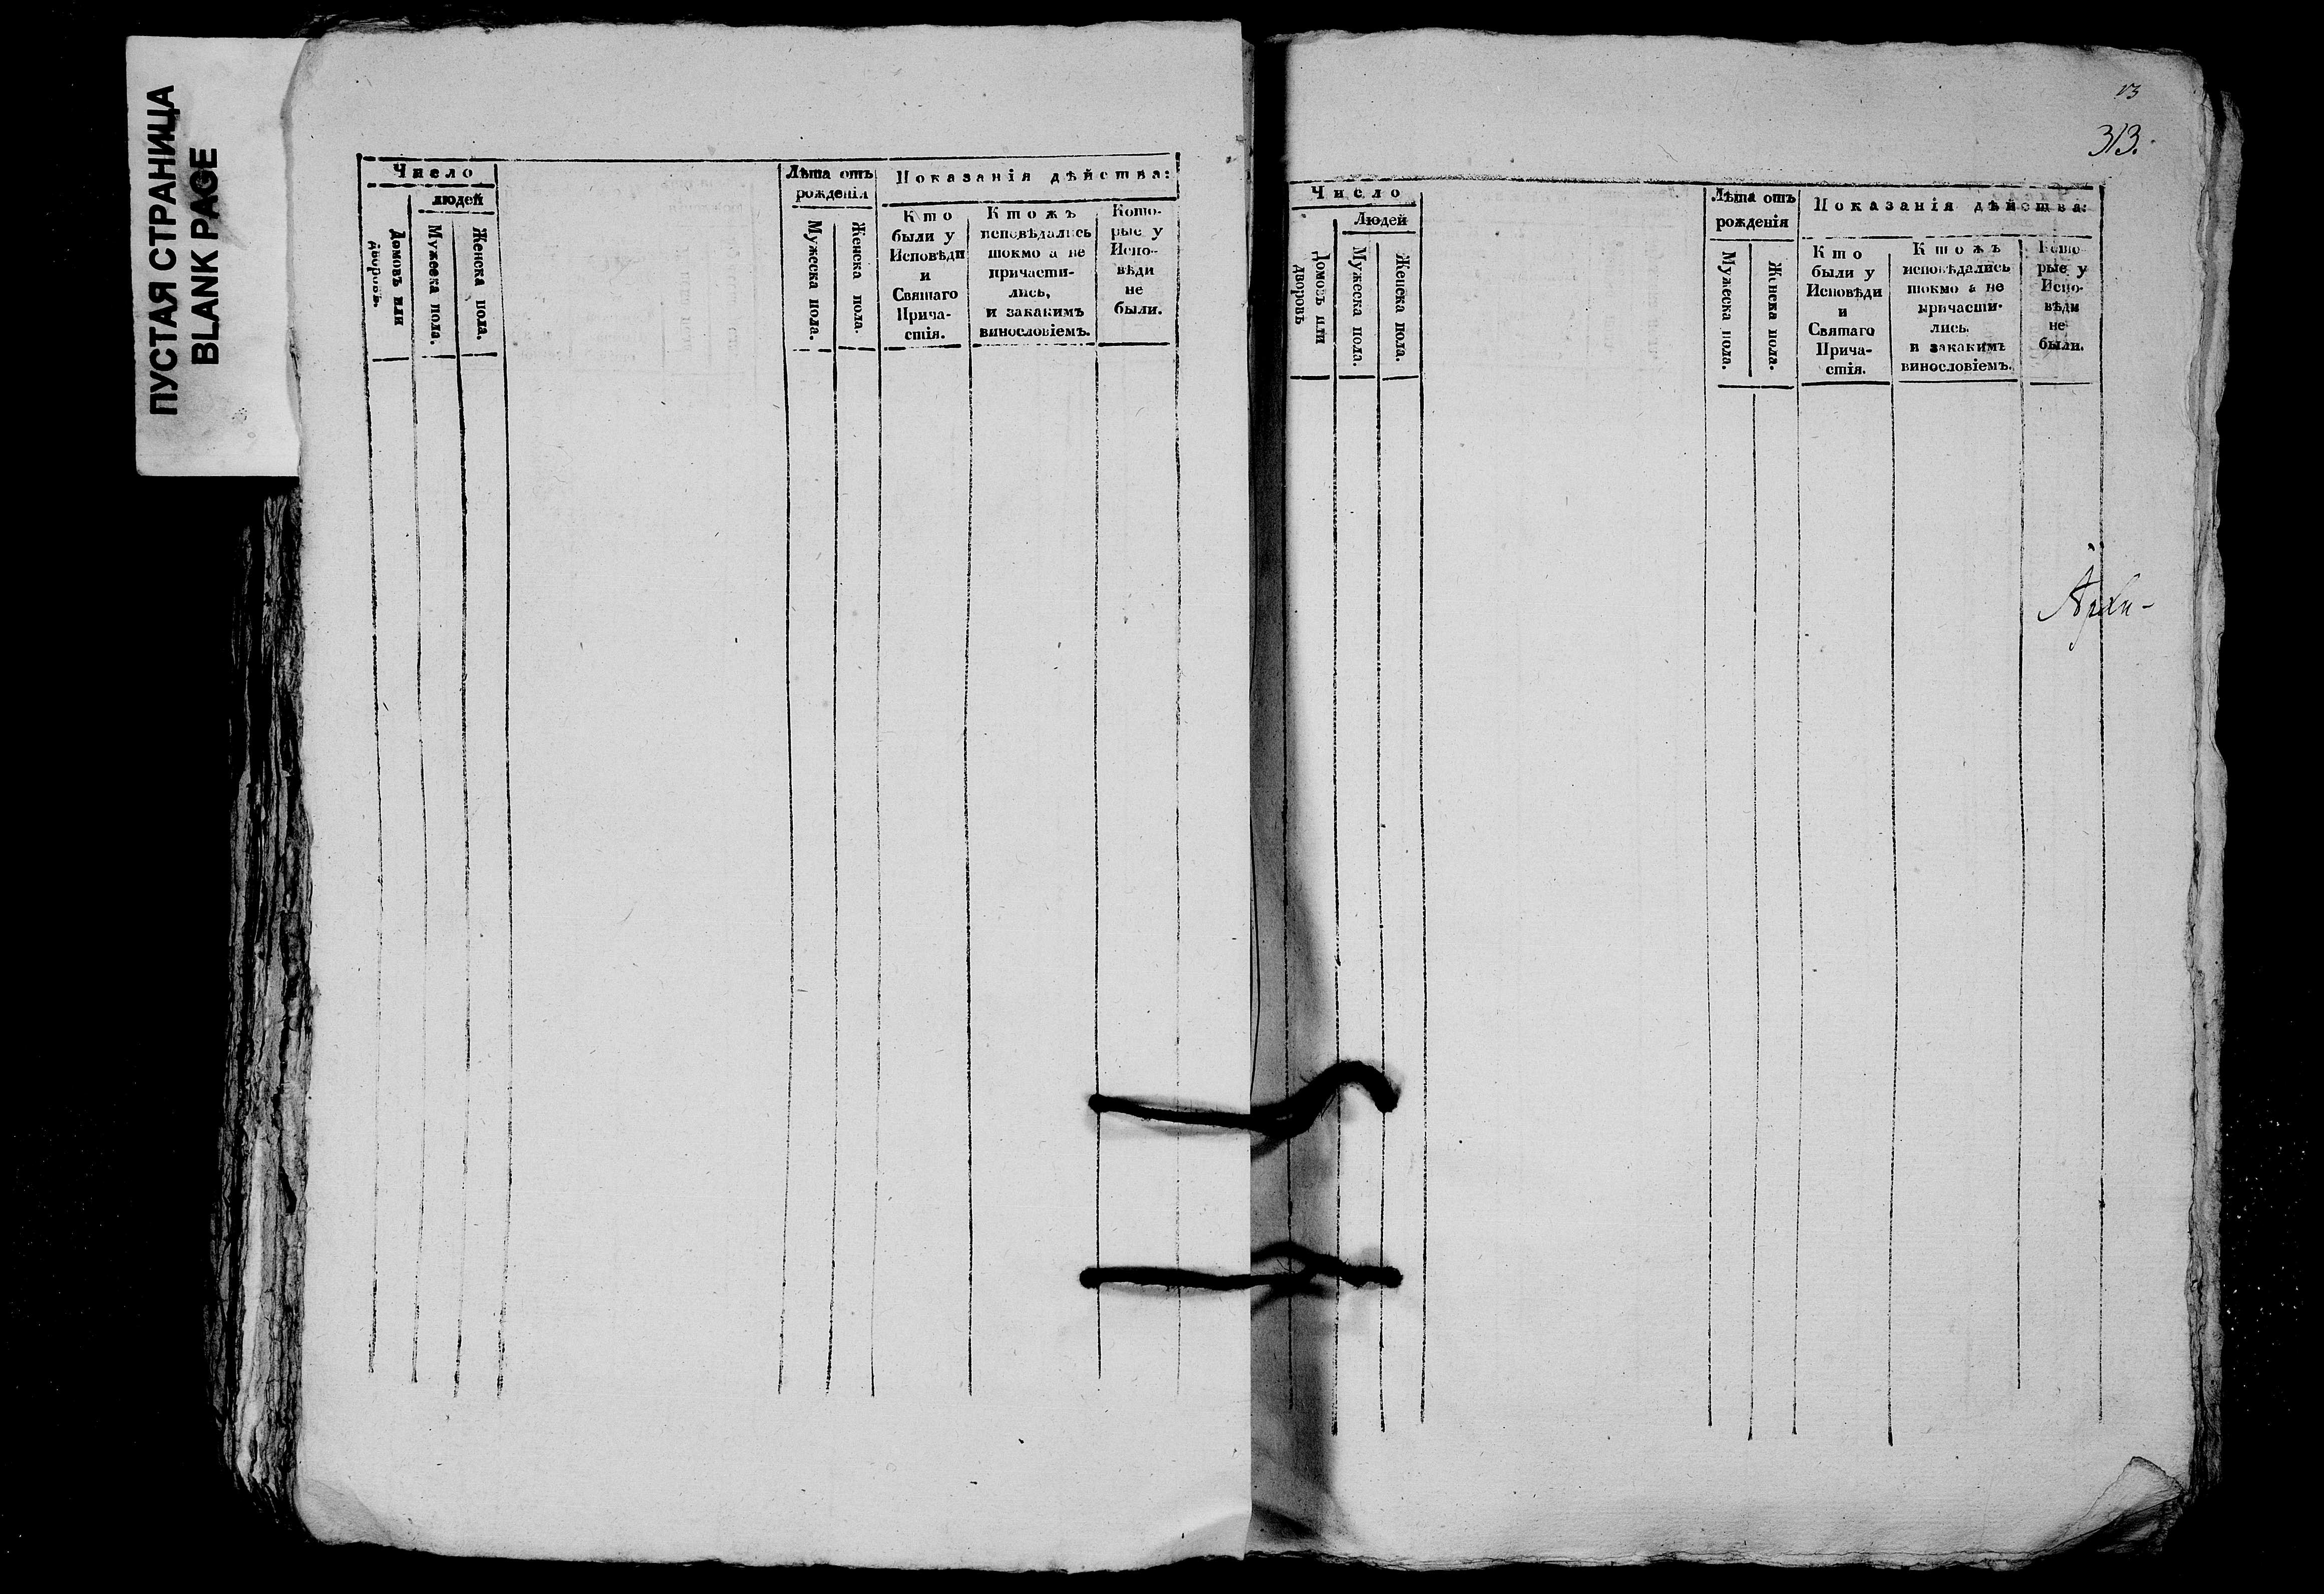 ПУСТАЯ СТРАНИЦА
BLANK PAGE
Число
людей
Домовъ или
дворовъ.
Мужеска пола.
Женска пола.
Лѣта отъ
рожденія
Мужеска пола.
Женска пола.
Показанія дѣйства:
Кто
были у
Исповѣди
и
Святаго
Прича-
стія.
Ктожъ
исповѣдались
токмо а не
причасти-
лись,
и закакимъ
винословіемъ.
Кото-
рые у
Испо-
вѣди
не
были.
13
313.
Число
Людей
Домовъ или
дворовъ
Мужеска пола.
Женска пола.
Лѣта отъ
рожденія
Мужеска пола.
Женска пола.
Показанія дѣйства:
Кто
были у
Исповѣди
и
Святаго
Прича-
стія.
Ктожъ
исповѣдались
токмо а не
причасти-
лись.
и закакимъ
винословіемъ.
Кото
рые у
Испо-
вѣди
не
были.
Архи-